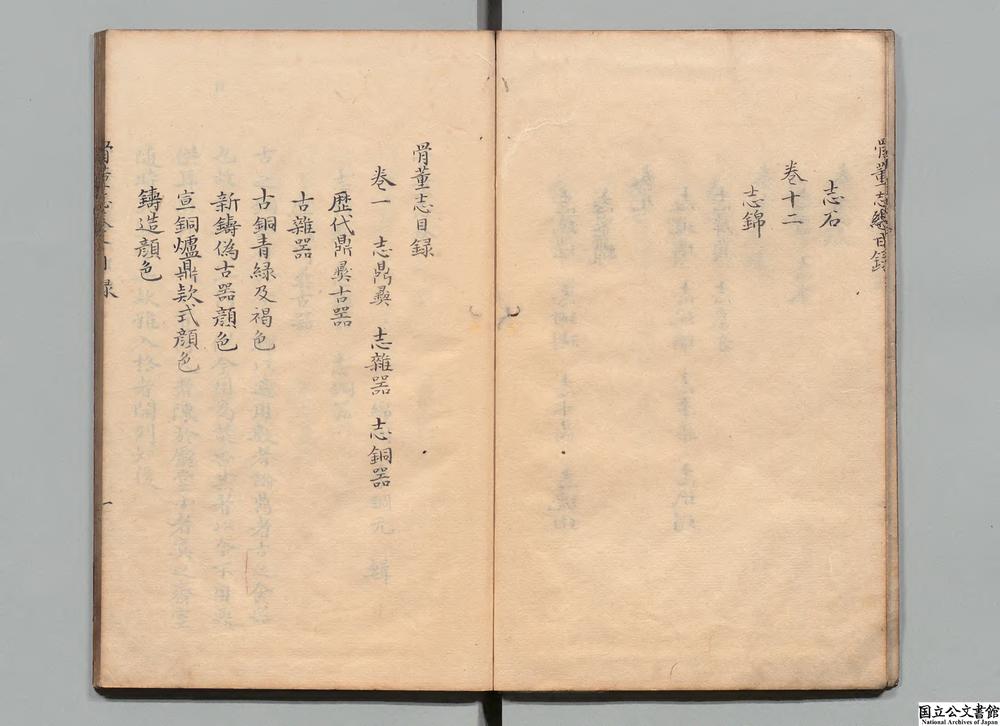 骨董志總目録
志石
卷十二
志錦
骨董志目録
卷一　志鼎彞　志雜器　志銅器
歴代鼎彞古器
古雜器
古銅青緑及褐色
新鑄偽古器顔色
宣銅爐鼎欵式顔色
鑄造顔色
一
国立公文書館
National Archives of Japan